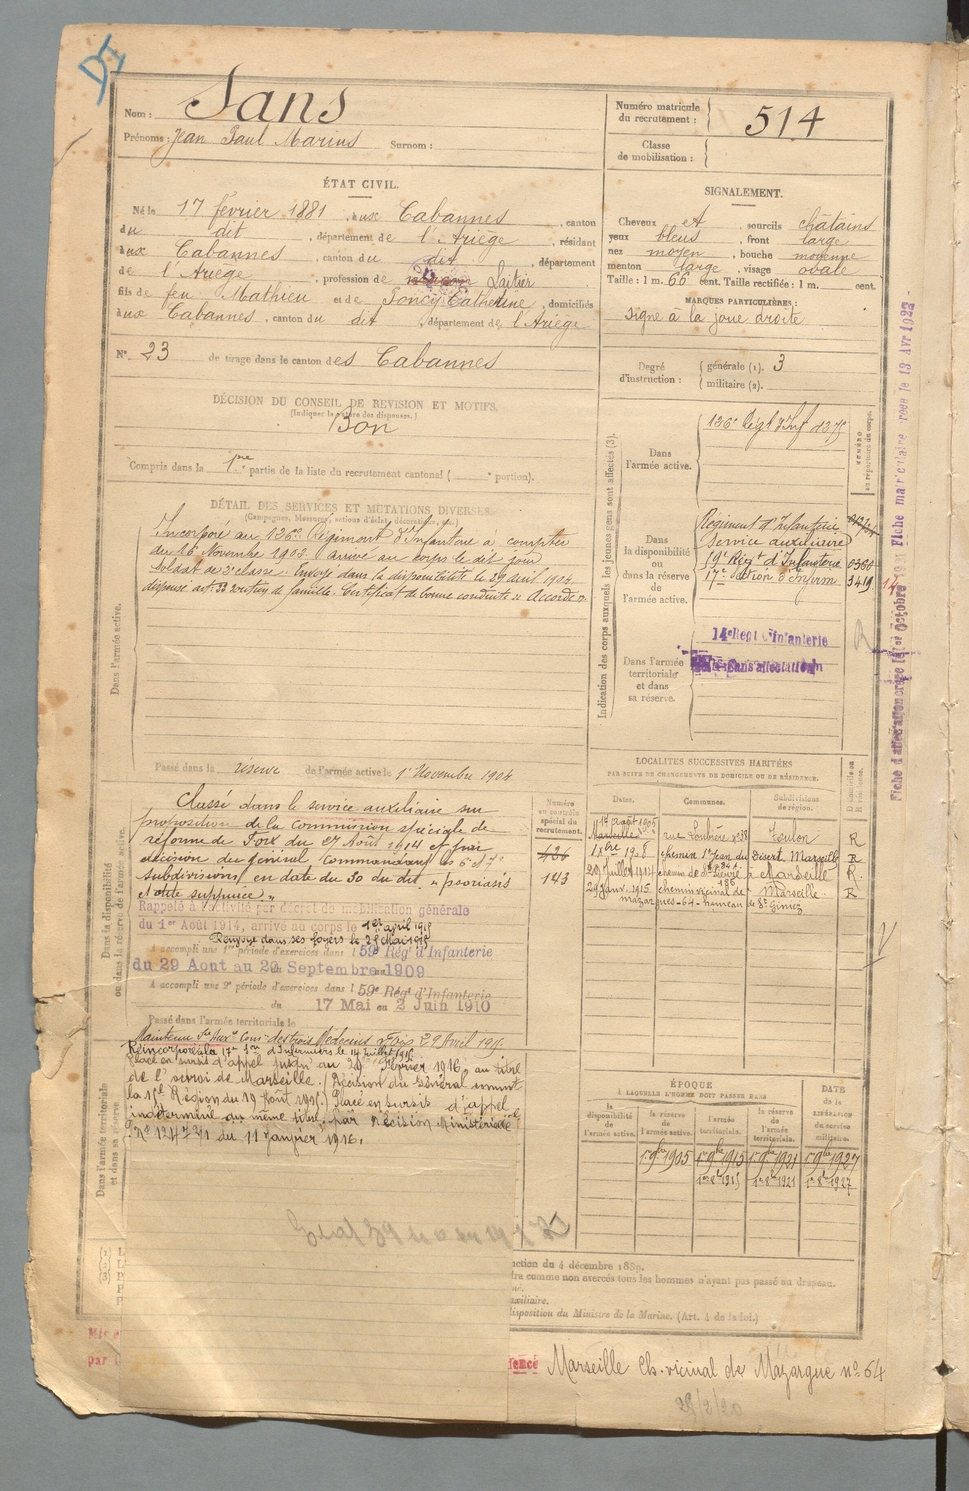 DI
Nom : Sans
Prénoms : Jean Paul Marius Surnom :
Numéro matricule
du recrutement : 514
Classe
de mobilisation :
ÉTAT CIVIL.
Né le 17 février 1881, aux Cabannes, canton
du dit, département de l'Ariège, résidant
aux Cabannes, canton du dit, département
de l'Ariège, profession de Laitier
fils de feu Mathieu et de Soncy Catherine, domiciliés
aux Cabannes, canton du dit, département de l'Ariège
N° 23 de tirage dans le canton des Cabannes
SIGNALEMENT.
Cheveux et, sourcils châtains
yeux bleus, front large
nez moyen, bouche moyenne
menton large, visage ovale
Taille : 1 m. 60 cent. Taille rectifiée : 1 m. cent.
MARQUES PARTICULIÈRES :
signe à la joue droite
Degré
d'instruction :
générale (1). 3
militaire (2).
DÉCISION DU CONSEIL DE REVISION ET MOTIFS.
(Indiquer la nature des dispenses.)
Bon
Compris dans la 1re partie de la liste du recrutement cantonal ( e portion).
DÉTAIL DES SERVICES ET MUTATIONS DIVERSES
(Campagnes, blessures, actions d'éclat, décorations, etc.)
Dans l'armée active.
Incorporé au 126e Régiment d'Infanterie à compter
du 16 Novembre 1903 arrivé au corps le dit jour
soldat de 2e classe. Envoyé dans la disponibilité le 29 avril 1904.
dispensé art. 22 soutien de famille. Certificat de bonne conduite "Accordé".
Passé dans la réserve de l'armée active le 1er Novembre 1904
Indication des corps auxquels les jeunes gens sont affectés (3).
NUMÉRO
au répertoire du corps.
Dans
l'armée active.
126e Régt d'Inf
Dans
la disponibilité
ou
dans la réserve
de
l'armée active.
Régiment d'Infanterie
Service auxiliaire
19e Régt d'Infanterie 0360
17e Section d'Infirm 3419
Dans l'armée
territoriale
et dans
sa réserve.
14e Régt d'Infanterie
Sans affectation
Fiche d'affectation créée le 1er Octobre Fiche matriculaire créée le 13 Avr 1923
Dans la disponibilité
ou dans la réserve de l'armée active.
Classé dans le service auxiliaire sur
proposition de la commission spéciale de
réforme de Foix du 27 Août 1914 et par
décision du général Commandant les 6e et 7e
subdivisions en date du 30 du dit, "psoriasis
Rappelé à l'activité par décret de mobilisation générale
du 1er Août 1914, arrivé au corps le 1er avril 1915
Renvoyé dans ses foyers le 28 Mai 1915
A accompli une 1re période d'exercices dans l 59e Régt d'Infanterie
du 29 Aout au 20 Septembre 1909
A accompli une 2e période d'exercices dans l 59e Régt d'Infanterie
du 17 Mai au 2 Juin 1910
Passé dans l'armée territoriale le
Numéro
au contrôle
spécial du
recrutement.
426
143
Dans l'armée territoriale
et dans sa réserve
Réincorporé à la 17e Son d'Infirmiers le 14 juillet 1915.
Placé en sursis d'appel jusqu'au 29 Février 1916 au titre
de l'octroi de Marseille. (Décision du Général commt
la 15e Région du 19 Août 1915) Placé en sursis d'appel
indéterminé au même titre, par Décision Ministérielle
du 11 Janvier 1916.
LOCALITÉS SUCCESSIVES HABITÉES
PAR SUITE DE CHANGEMENTS DE DOMICILE OU DE RÉSIDENCE.
Dates. Communes. Subdivisions
de région.
17 Août 1905 rue Loubère n°38 Toulon R
1908 chemin St Jean du Désert Marseille R
29 Juillet 1914 Marseille R
29 Janv. 1915 chemin vicinal de Marseille R
mazargues-64-hameau de Ste Giniez
ÉPOQUE
À LAQUELLE L'HOMME DOIT PASSER DANS
la
disponibilité
de
l'armée active.
la réserve
de
l'armée active.
l'armée
territoriale.
la réserve
de
l'armée
territoriale.
DATE
de la
LIBÉRATION
du service
militaire.
1er 9bre 1905 1er 9bre 1915 1er 9bre 1921 1er 9bre 1927
1er 8e 1915 1er 8e 1921 1er 8e 1927
ction du 4 décembre 1889.
comme non exercés tous les hommes n'ayant pas passé au drapeau.
uxiliaire.
disposition du Ministre de la Marine. (Art. 4 de la loi.)
Marseille Ch. vicinal de Mazargue n° 64